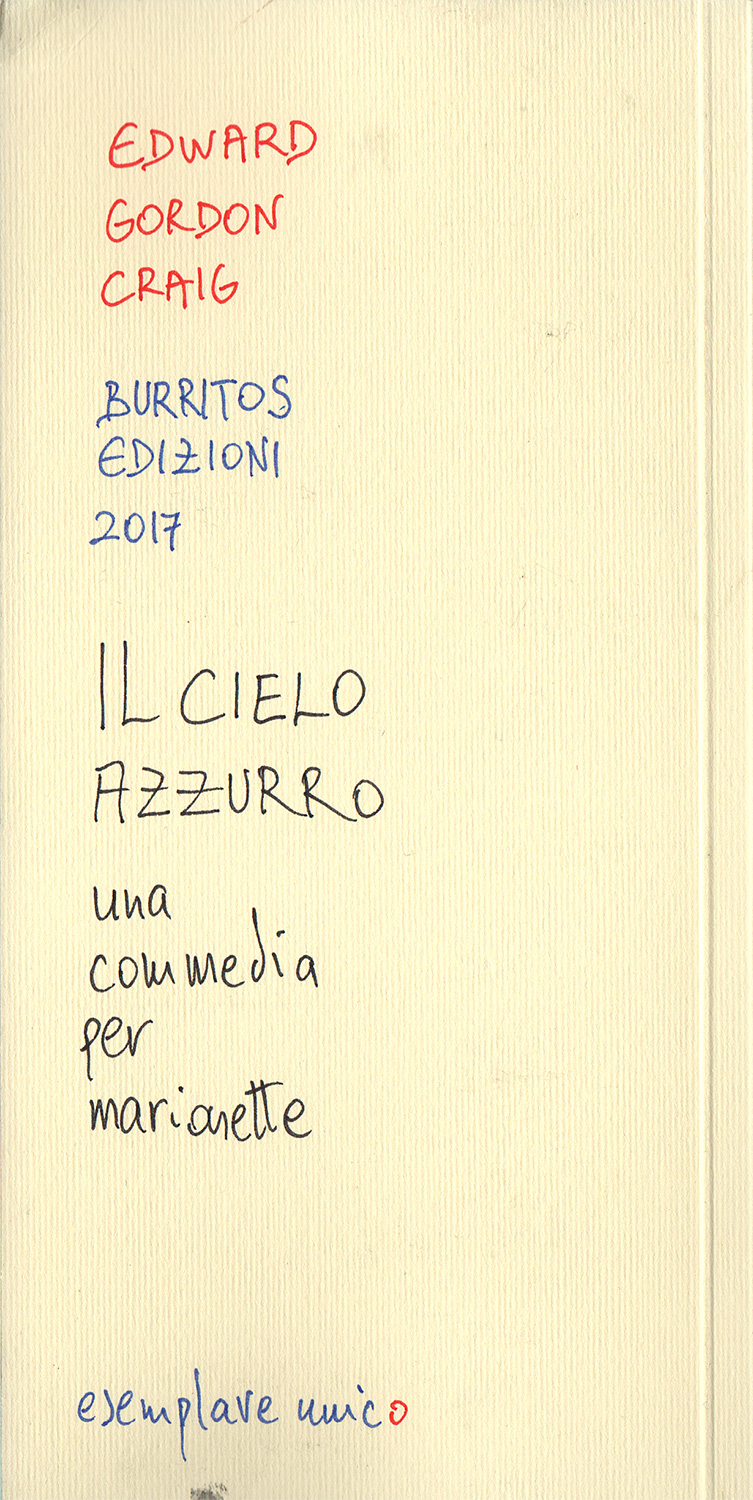 EDWARD
GORDON
CRAIG
BURRITOS
EDIZIONI
2017
IL CIELO
AZZURRO
una
commedia
per
marionette
esemplare unico